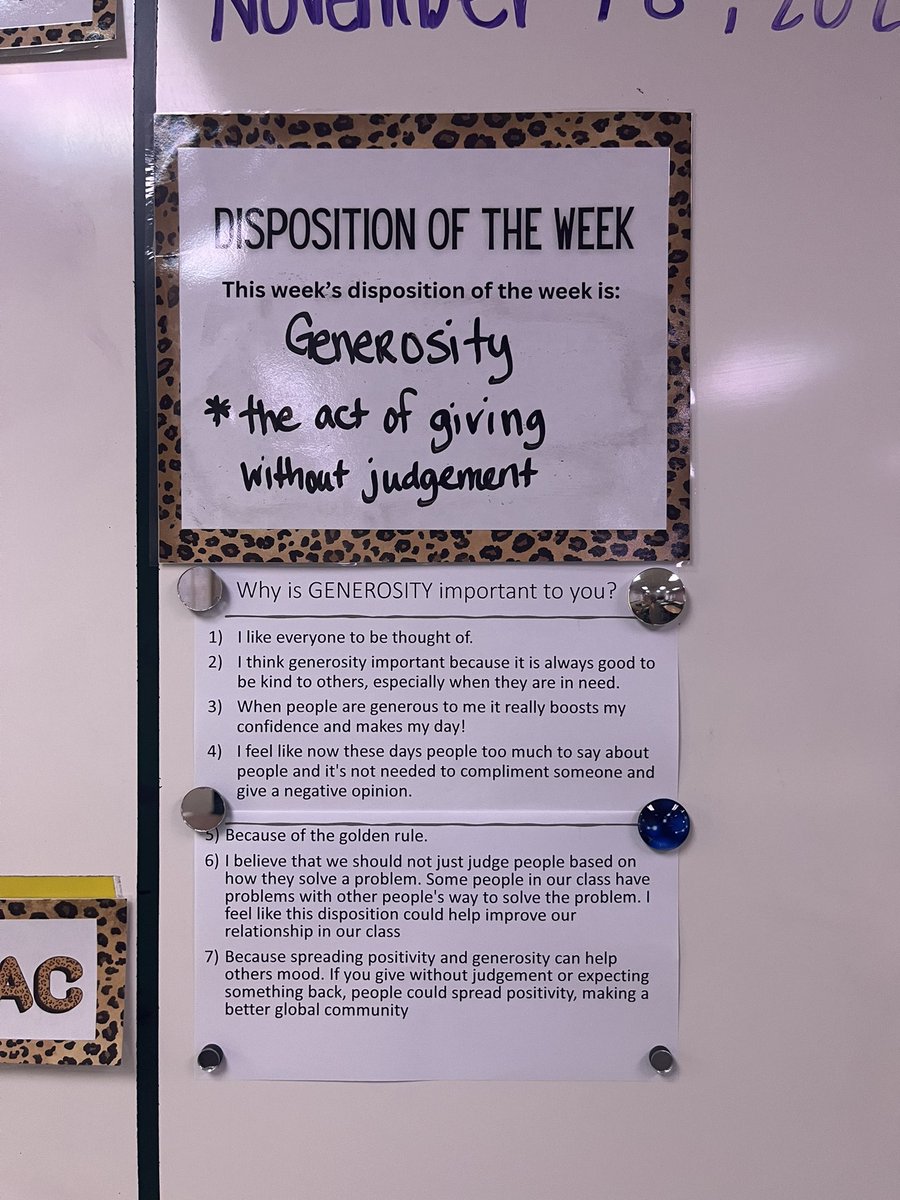 November 18, 202
DISPOSITION OF THE WEEK
This week's disposition of the week is:
Generosity
* the act of giving
without judgement
Why is GENEROSITY important to you?
1) I like everyone to be thought of.
2) I think generosity important because it is always good to
be kind to others, especially when they are in need.
3) When people are generous to me it really boosts my
confidence and makes my day!
4) I feel like now these days people too much to say about
people and it's not needed to compliment someone and
give a negative opinion.
5) Because of the golden rule.
6) I believe that we should not just judge people based on
how they solve a problem. Some people in our class have
problems with other people's way to solve the problem. I
feel like this disposition could help improve our
relationship in our class
7) Because spreading positivity and generosity can help
others mood. If you give without judgement or expecting
something back, people could spread positivity, making a
better global community
AC